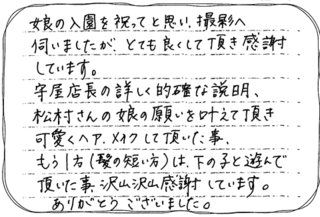 娘の入園を祝ってと思い、撮影へ
伺いましたが、とても良くして頂き感謝
しています。
守屋店長の詳しく的確な説明、
松村さんの娘の願いを叶えて頂き
可愛くヘア、メイクして頂いた事、
もう1方(髪の短い方)は、下の子と遊んで
頂いた事、沢山沢山感謝しています。
ありがとうございました。